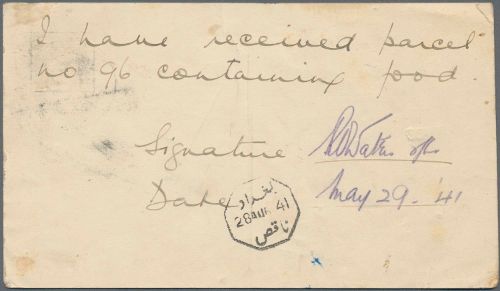 I have received parcel
no 96 containing food.
Signature
Date May 29. '41
بغداد
28 AUG 41
ناقص